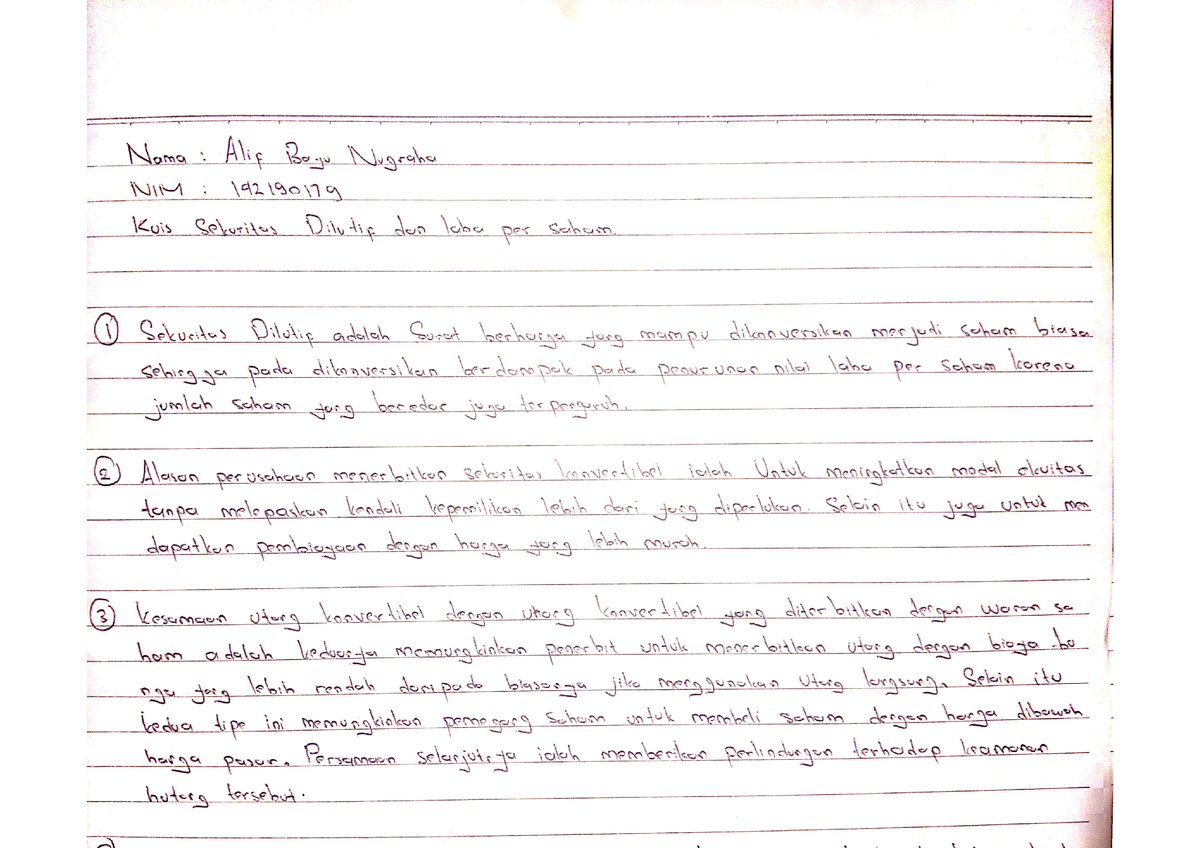 Nama : Alif Bayu Nugraha
NIM : 142190179
Kuis Sekuritas Dilutif dan laba per saham.
① Sekuritas Dilutif adalah Surat berharga yang mampu dikonversikan menjadi saham biasa
sehingga pada dikonversikan berdampak pada penurunan nilai laba per saham karena
jumlah saham yang beredar juga terpengaruh.
② Alasan perusahaan menerbitkan sekuritas konvertibel ialah Untuk meningkatkan modal ekuitas
tanpa melepaskan kendali kepemilikan lebih dari yang diperlukan. Selain itu juga untuk men
dapatkan pembiayaan dengan harga yang lebih murah.
③ Kesamaan utang konvertibel dengan utang konvertibel yang diterbitkan dengan waran sa
ham adalah keduanya memungkinkan penerbit untuk menerbitkan utang dengan biaya bu
nga yang lebih rendah daripada biasanya jika menggunakan utang langsung. Selain itu
kedua tipe ini memungkinkan pemegang saham untuk membeli saham dengan harga dibawah
harga pasar. Persamaan selanjutnya ialah memberikan perlindungan terhadap keamanan
hutang tersebut.